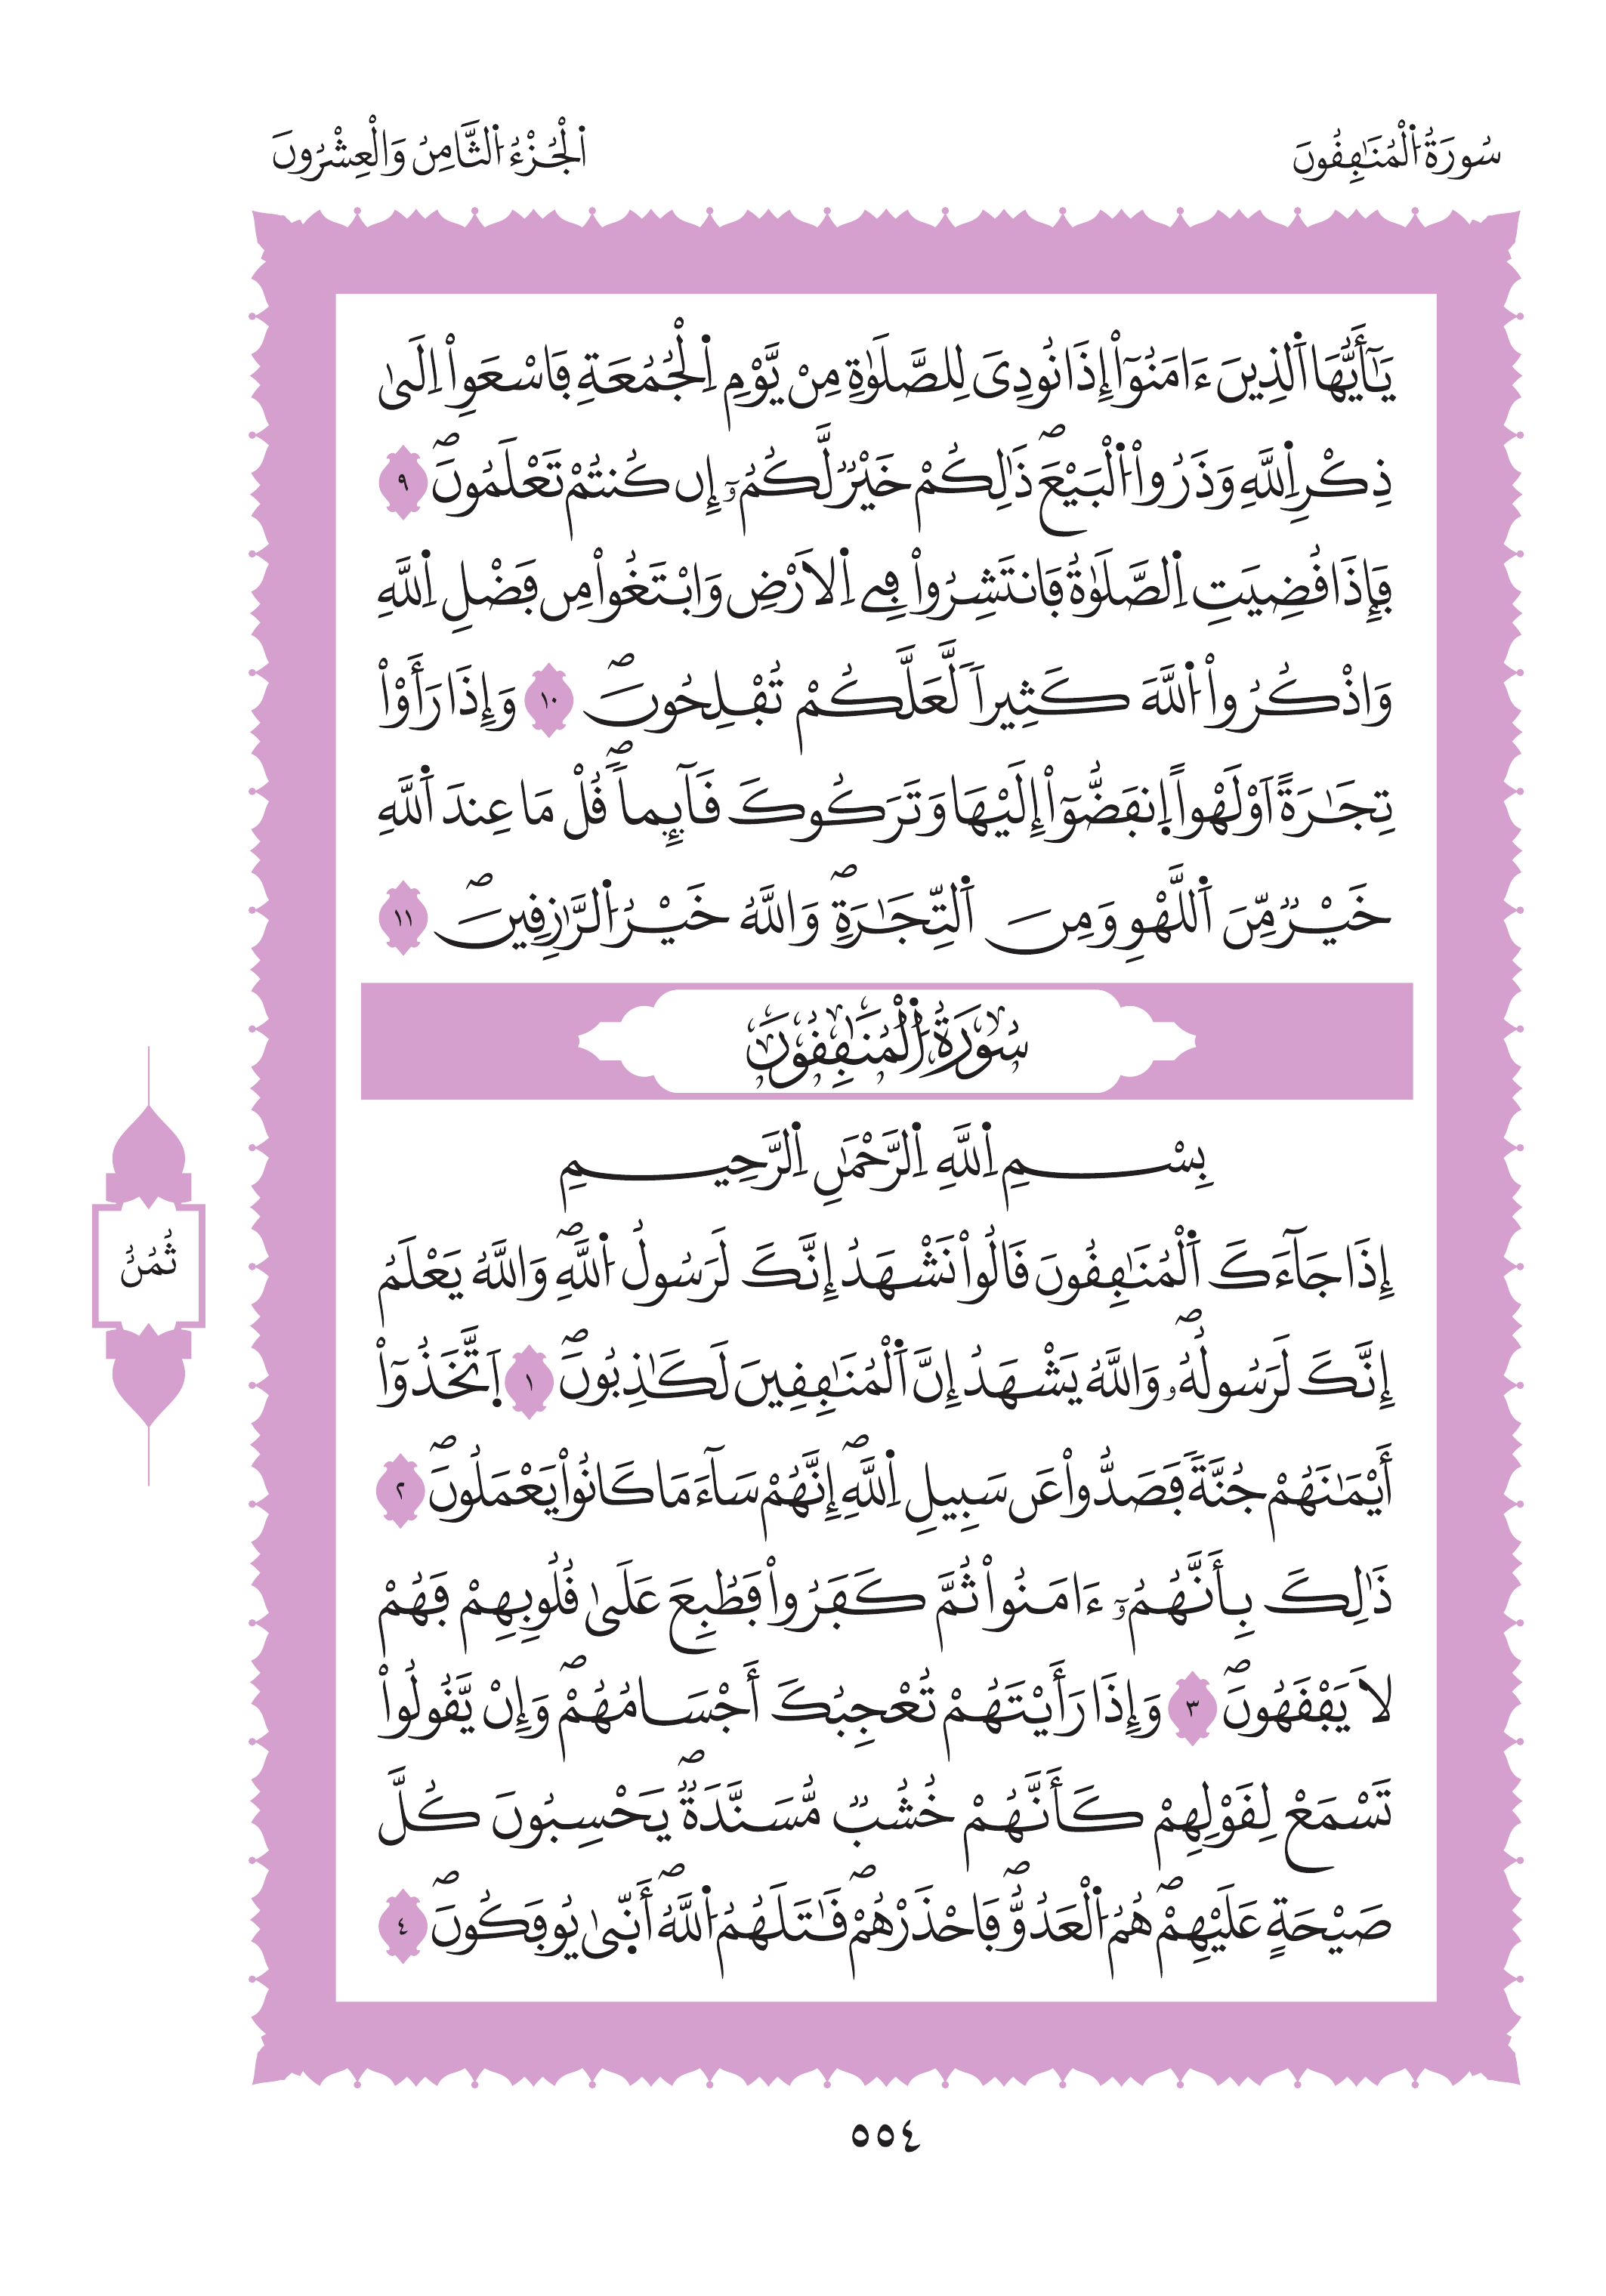 سُورَةُ اُ۬لْمُنَٰفِقُونَ
اَ۬لْجُزْءُ اُ۬لثَّامِنُ وَالْعِشْرُونَ
يَٰٓأَيُّهَا اَ۬لذِينَ ءَامَنُوٓاْ إِذَا نُودِىَ لِلصَّلَوٰةِ مِنْ يَّوْمِ اِ۬لْجُمُعَةِ فَاسْعَوِاْ اِلَىٰ
ذِكْرِ اِ۬للَّهِ وَذَرُواْ اُ۬لْبَيْعَۖ ذَٰلِكُمْ خَيْرٞ لَّكُمُۥٓ إِن كُنتُمْ تَعْلَمُونَۖ ٩
فَإِذَا قُضِيَتِ اِ۬لصَّلَوٰةُ فَانتَشِرُواْ فِے اِ۬لَارْضِ وَابْتَغُواْ مِن فَضْلِ اِ۬للَّهِ
وَاذْكُرُواْ اُ۬للَّهَ كَثِيراٗ لَّعَلَّكُمْ تُفْلِحُونَۖ ١٠ وَإِذَا رَأَوْاْ
تِجَٰرَةً اَوْ لَهْواً اِ۪نفَضُّوٓاْ إِلَيْهَا وَتَرَكُوكَ قَآئِماٗۖ قُلْ مَا عِندَ اَ۬للَّهِ
خَيْرٞ مِّنَ اَ۬للَّهْوِ وَمِنَ اَ۬لتِّجَٰرَةِۖ وَاللَّهُ خَيْرُ اُ۬لرَّٰزِقِينَۖ ١١
سُورَةُ اُ۬لْمُنَٰفِقُونَ
بِسْمِ اِ۬للَّهِ اِ۬لرَّحْمَٰنِ اِ۬لرَّحِيمِ
إِذَا جَآءَكَ اَ۬لْمُنَٰفِقُونَ قَالُواْ نَشْهَدُ إِنَّكَ لَرَسُولُ اُ۬للَّهِۖ وَاللَّهُ يَعْلَمُ
إِنَّكَ لَرَسُولُهُۥۖ وَاللَّهُ يَشْهَدُ إِنَّ اَ۬لْمُنَٰفِقِينَ لَكَٰذِبُونَۖ ١ اَ۪تَّخَذُوٓاْ
أَيْمَٰنَهُمْ جُنَّةٗ فَصَدُّواْ عَن سَبِيلِ اِ۬للَّهِۖ إِنَّهُمْ سَآءَ مَا كَانُواْ يَعْمَلُونَۖ ٢
ذَٰلِكَ بِأَنَّهُمُۥٓ ءَامَنُواْ ثُمَّ كَفَرُواْ فَطُبِعَ عَلَىٰ قُلُوبِهِمْ فَهُمْ
لَا يَفْقَهُونَۖ ٣ وَإِذَا رَأَيْتَهُمْ تُعْجِبُكَ أَجْسَامُهُمْۖ وَإِنْ يَّقُولُواْ
تَسْمَعْ لِقَوْلِهِمْ كَأَنَّهُمْ خُشُبٞ مُّسَنَّدَةٞۖ يَحْسِبُونَ كُلَّ
صَيْحَةٍ عَلَيْهِمْۖ هُمُ اُ۬لْعَدُوُّۖ فَاحْذَرْهُمْۖ قَٰتَلَهُمُ اُ۬للَّهُۖ أَنّ۪ىٰ يُوفَكُونَۖ ٤
ثُمُنُ
٥٥٤